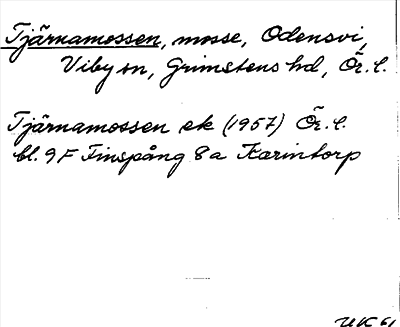 Tjärnamossen, mosse, Odensvi,
Viby sn, Grimstens hd, Ör. l.
Tjärnamossen ek (1957) Ör. l.
bl. 9F Finspång 8a Karintorp
UK 61